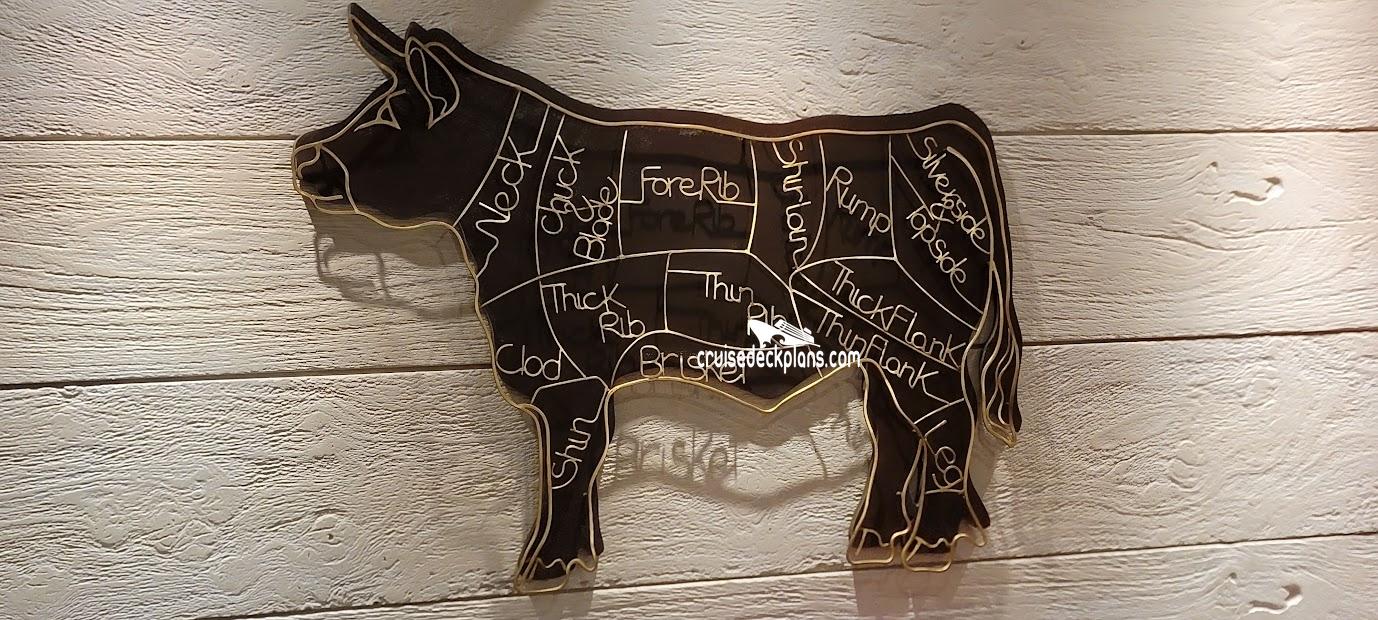 Neck
Chuck
&
Blade
ForeRib
Shirloin
Rump
Silverside
&
Topside
Thick
Rib
Thin
Rib
ThickFlank
ThinFlank
Clod
Brisket
cruisedeckplans.com
Shin
Leg